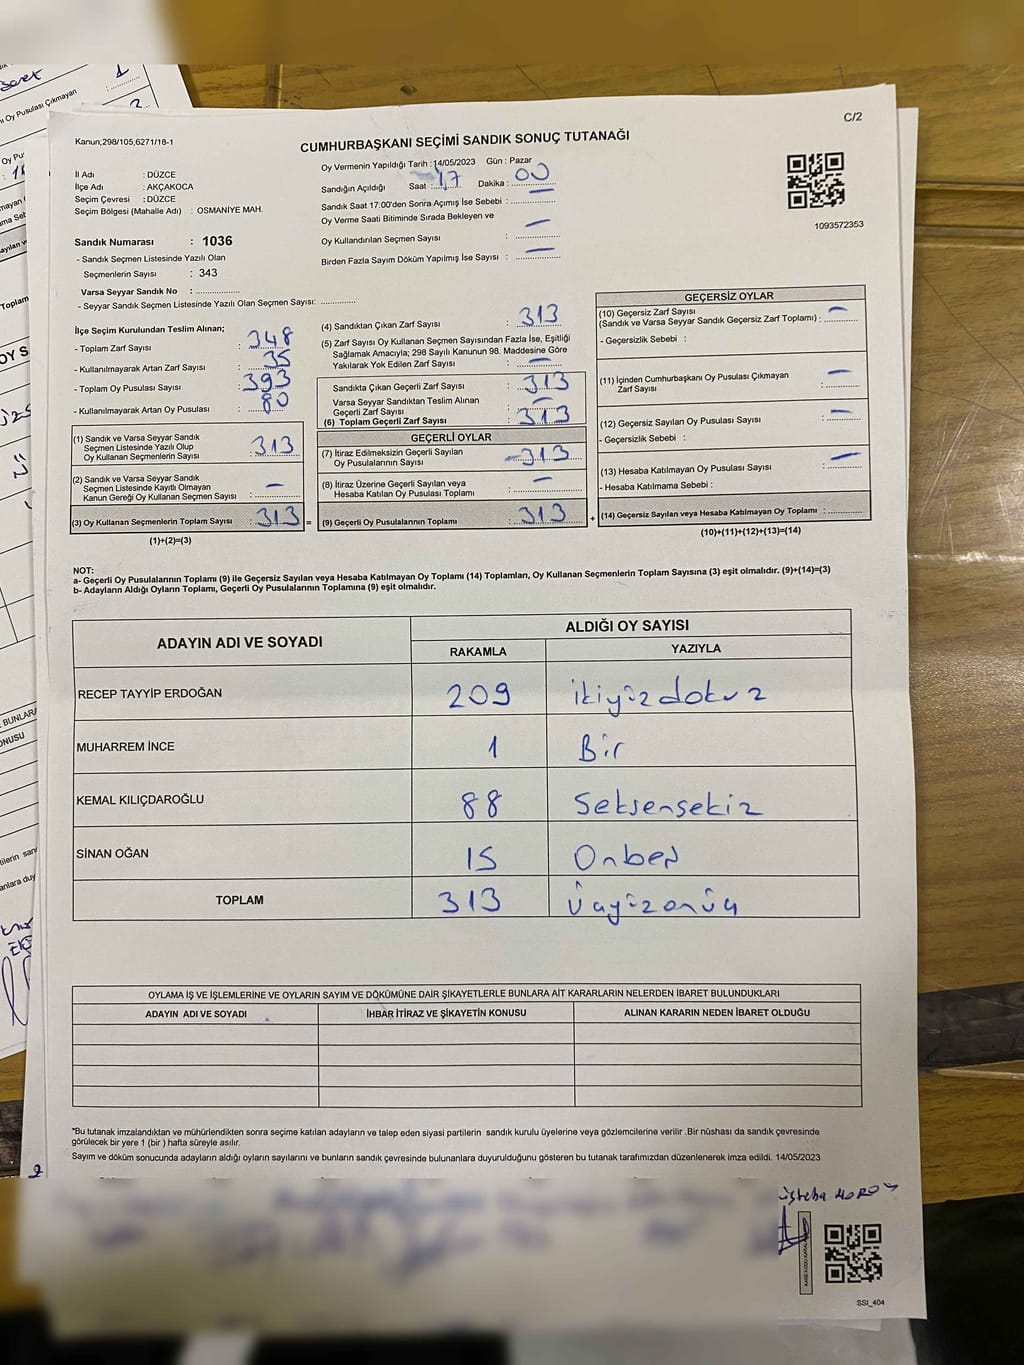 C/2
Kanun;298/105,6271/18-1
CUMHURBAŞKANI SEÇİMİ SANDIK SONUÇ TUTANAĞI
İl Adı : DÜZCE
İlçe Adı : AKÇAKOCA
Seçim Çevresi : DÜZCE
Seçim Bölgesi (Mahalle Adı) : OSMANİYE MAH.
Oy Vermenin Yapıldığı Tarih : 14/05/2023 Gün : Pazar
Sandığın Açıldığı Saat : 17 Dakika : 00
Sandık Saat 17:00'den Sonra Açımış İse Sebebi :
Oy Verme Saati Bitiminde Sırada Bekleyen ve
Oy Kullandırılan Seçmen Sayısı : —
Birden Fazla Sayım Döküm Yapılmış İse Sayısı : —
1093572353
Sandık Numarası : 1036
- Sandık Seçmen Listesinde Yazılı Olan
Seçmenlerin Sayısı : 343
Varsa Seyyar Sandık No :
- Seyyar Sandık Seçmen Listesinde Yazılı Olan Seçmen Sayısı:
İlçe Seçim Kurulundan Teslim Alınan;
- Toplam Zarf Sayısı : 348
- Kullanılmayarak Artan Zarf Sayısı : 35
- Toplam Oy Pusulası Sayısı : 393
- Kullanılmayarak Artan Oy Pusulası : 80
(1) Sandık ve Varsa Seyyar Sandık
Seçmen Listesinde Yazılı Olup
Oy Kullanan Seçmenlerin Sayısı : 313
(2) Sandık ve Varsa Seyyar Sandık
Seçmen Listesinde Kayıtlı Olmayan
Kanun Gereği Oy Kullanan Seçmen Sayısı : —
(3) Oy Kullanan Seçmenlerin Toplam Sayısı : 313 =
(1)+(2)=(3)
(4) Sandıktan Çıkan Zarf Sayısı : 313
(5) Zarf Sayısı Oy Kullanan Seçmen Sayısından Fazla İse, Eşitliği
Sağlamak Amacıyla; 298 Sayılı Kanunun 98. Maddesine Göre
Yakılarak Yok Edilen Zarf Sayısı : —
Sandıkta Çıkan Geçerli Zarf Sayısı : 313
Varsa Seyyar Sandıktan Teslim Alınan
Geçerli Zarf Sayısı : —
(6) Toplam Geçerli Zarf Sayısı : 313
GEÇERLİ OYLAR
(7) İtiraz Edilmeksizin Geçerli Sayılan
Oy Pusulalarının Sayısı : 313
(8) İtiraz Üzerine Geçerli Sayılan veya
Hesaba Katılan Oy Pusulası Toplamı : —
(9) Geçerli Oy Pusulalarının Toplamı : 313 +
GEÇERSİZ OYLAR
(10) Geçersiz Zarf Sayısı
(Sandık ve Varsa Seyyar Sandık Geçersiz Zarf Toplamı) : —
- Geçersizlik Sebebi :
(11) İçinden Cumhurbaşkanı Oy Pusulası Çıkmayan
Zarf Sayısı : —
(12) Geçersiz Sayılan Oy Pusulası Sayısı : —
- Geçersizlik Sebebi :
(13) Hesaba Katılmayan Oy Pusulası Sayısı : —
- Hesaba Katılmama Sebebi :
(14) Geçersiz Sayılan veya Hesaba Katılmayan Oy Toplamı :
(10)+(11)+(12)+(13)=(14)
NOT:
a- Geçerli Oy Pusulalarının Toplamı (9) ile Geçersiz Sayılan veya Hesaba Katılmayan Oy Toplamı (14) Toplamları, Oy Kullanan Seçmenlerin Toplam Sayısına (3) eşit olmalıdır. (9)+(14)=(3)
b- Adayların Aldığı Oyların Toplamı, Geçerli Oy Pusulalarının Toplamına (9) eşit olmalıdır.
ADAYIN ADI VE SOYADI
ALDIĞI OY SAYISI
RAKAMLA YAZIYLA
RECEP TAYYİP ERDOĞAN 209 ikiyüzdokuz
MUHARREM İNCE 1 Bir
KEMAL KILIÇDAROĞLU 88 Seksensekiz
SİNAN OĞAN 15 Onbeş
TOPLAM 313 üçyüzonüç
OYLAMA İŞ VE İŞLEMLERİNE VE OYLARIN SAYIM VE DÖKÜMÜNE DAİR ŞİKAYETLERLE BUNLARA AİT KARARLARIN NELERDEN İBARET BULUNDUKLARI
ADAYIN ADI VE SOYADI İHBAR İTİRAZ VE ŞİKAYETİN KONUSU ALINAN KARARIN NEDEN İBARET OLDUĞU
*Bu tutanak imzalandıktan ve mühürlendikten sonra seçime katılan adayların ve talep eden siyasi partilerin sandık kurulu üyelerine veya gözlemcilerine verilir .Bir nüshası da sandık çevresinde
görülecek bir yere 1 (bir ) hafta süreyle asılır.
Sayım ve döküm sonucunda adayların aldığı oyların sayılarını ve bunların sandık çevresinde bulunanlara duyurulduğunu gösteren bu tutanak tarafımızdan düzenlenerek imza edildi. 14/05/2023
SSI_404